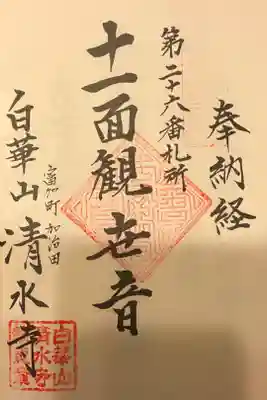 奉納経
第二十六番札所
十一面観世音
富加町加治田
白華山清水寺
白華山
清水寺